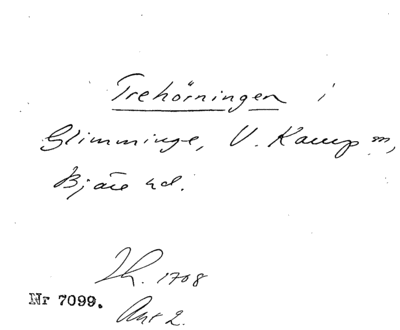 Trehörningen i
Glimminge, V. Karup sn,
Bjäre hd.
Lh. 1708
Nr 7099.
Akt 2.